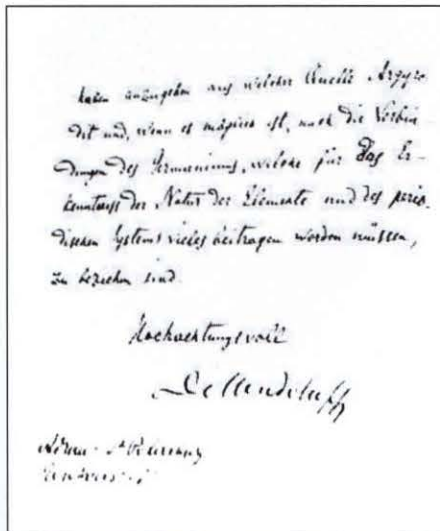 haben anzugeben aus welcher Quelle Argyro-
dit und, wenn es möglich ist, auch die Verbin-
dungen des Germaniums, welche für das Er-
kenntniss der Natur der Elemente und des perio-
dischen Systems vieles beitragen werden müssen,
zu beziehen sind.
Hochachtungsvoll
D. Mendeleeff